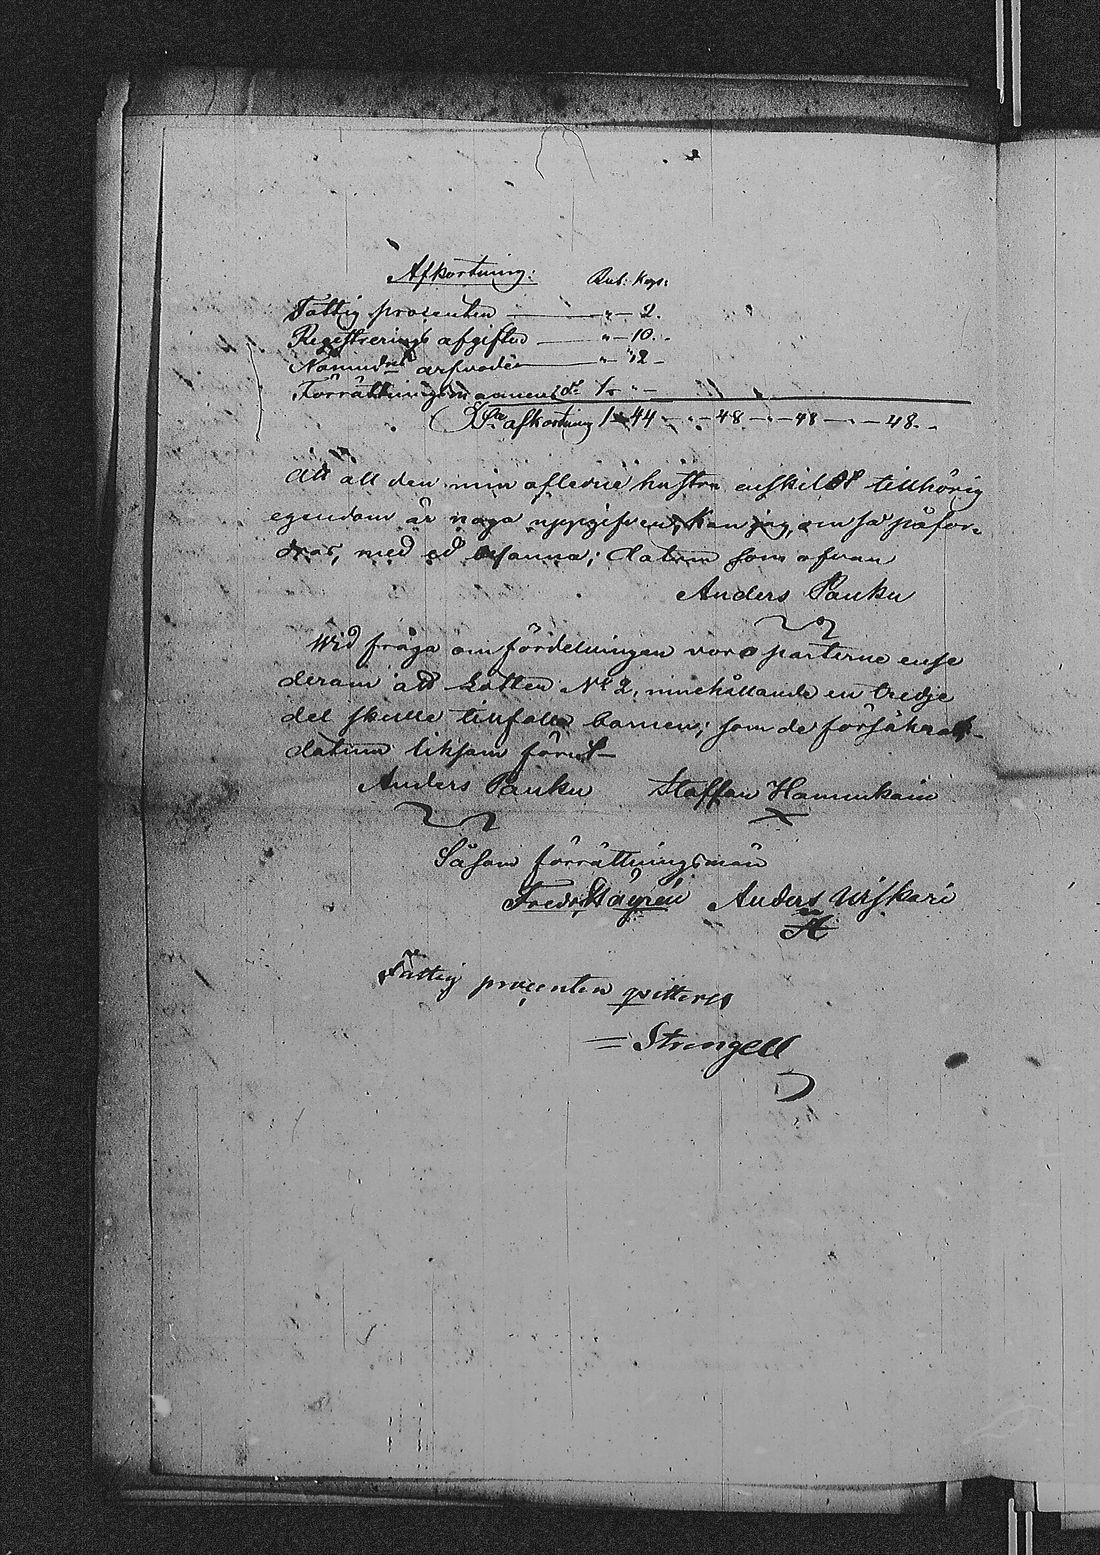 Afkortning: Rub: Kop:
Fattig procenten — " — 2.
Registrerings afgiften — " — 10.
Nämndens arfvoden — " — 32 —
Förrättningsmannens d:o 1 " —
S:a afkortning 1 44 — " — 48 — " — 48 — " — 48.
Att all den min aflidne hustru enskildt tillhörig
egendom är noga uppgifven, kan jag, om så påfor-
dras, med ed besanna; datum som ofvan
Anders Pauku
Wid fråga om fördelningen voro parterne ense
derom att Lotten N:o 2, innehållande en tredje
del skulle tillfalla barnen; som de försäkrat
datum liksom förut —
Anders Pauku Staffan Hannukain
Såsom förrättningsmän
Fredr. Hägrén Anders Uiskari
Fattig procenten qvitteras
= Strengell